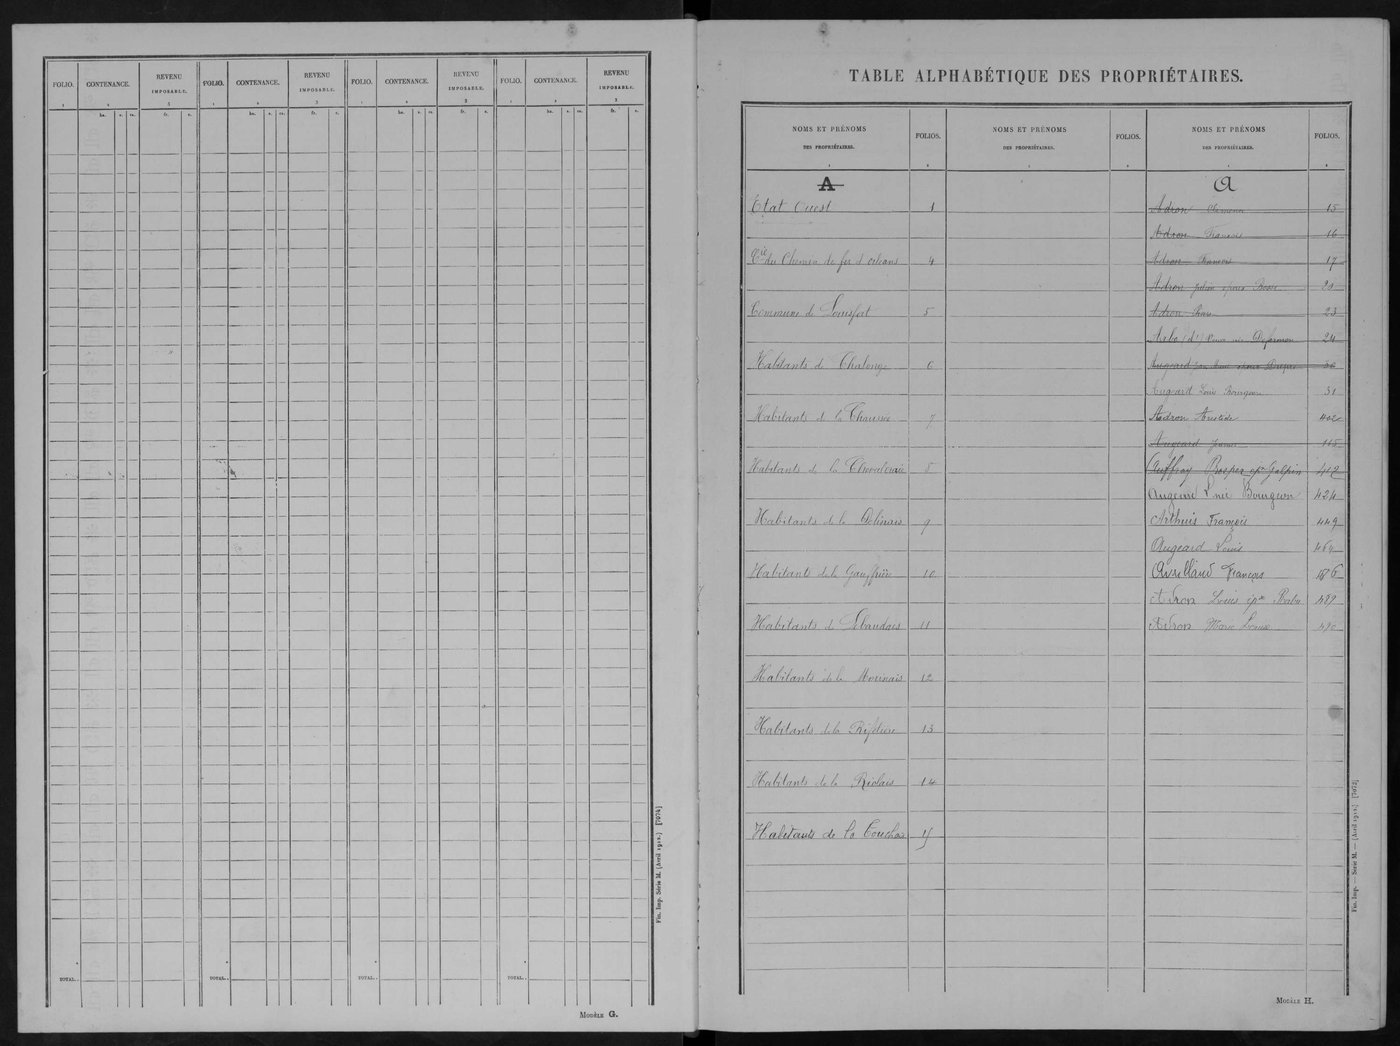 FOLIO. CONTENANCE. REVENU IMPOSABLE. FOLIO. CONTENANCE. REVENU IMPOSABLE. FOLIO. CONTENANCE. REVENU IMPOSABLE. FOLIO. CONTENANCE. REVENU IMPOSABLE.
1 2 3 1 2 3 1 2 3 1 2 3
ha. a. ca. fr. c. ha. a. ca. fr. c. ha. a. ca. fr. c. ha. a. ca. fr. c.
TOTAL. TOTAL. TOTAL. TOTAL.
Fin. Imp. Série M. (Avril 1912.) [7074]
MODÈLE G.
TABLE ALPHABÉTIQUE DES PROPRIÉTAIRES.
NOMS ET PRÉNOMS DES PROPRIÉTAIRES. FOLIOS. NOMS ET PRÉNOMS DES PROPRIÉTAIRES. FOLIOS. NOMS ET PRÉNOMS DES PROPRIÉTAIRES. FOLIOS.
A
Etat Ouest 1
Cie du Chemin de fer d'orleans 4
Commune de Louisfert 5
Habitants de Chalonge 6
Habitants de la Chaussée 7
Habitants de la 8
Habitants de la 9
Habitants de la 10
Habitants de 11
Habitants de la 12
Habitants de la 13
Habitants de la Riolais 14
Habitants de la
A
Adron 15
Adron François 16
Adron François 17
Adron épouse 20
Adron 23
24
Augeard 30
Augeard Louis Bourgeon 31
Adron Aristide 402
Augeard 115
Auffray Prosper Galpin 412
Augeard Bourgeon 424
Arthuis François 449
Augeard Louis 464
Avrilland François
Adron Louis 489
Adron Marie 490
Fin. Imp. — Série M. — (Avril 1912.) [7073]
MODÈLE H.